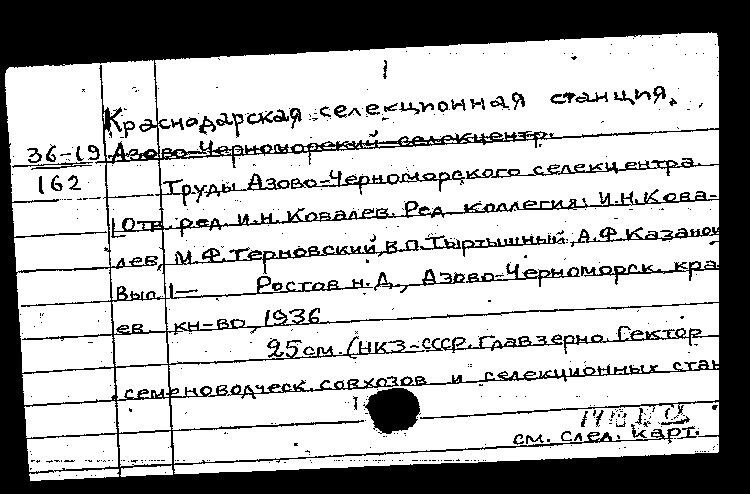 Краснодарская селекционная станция.
36-19 Азово-Черноморский селекцентр.
162 Труды Азово-Черноморского селекцентра.
|Отв. ред. И.Н. Ковалев. Ред. коллегия: И.Н. Кова-
лев, М.Ф. Терновский, В.П. Тыртышный, А.Ф. Казанск
Вып. 1— Ростов н.Д., Азово-Черноморск. кра-
ев. кн-во, 1936
25см. (НКЗ-СССР. Главзерно. Сектор
семеноводческ. совхозов и селекционных стан
см. след. карт.